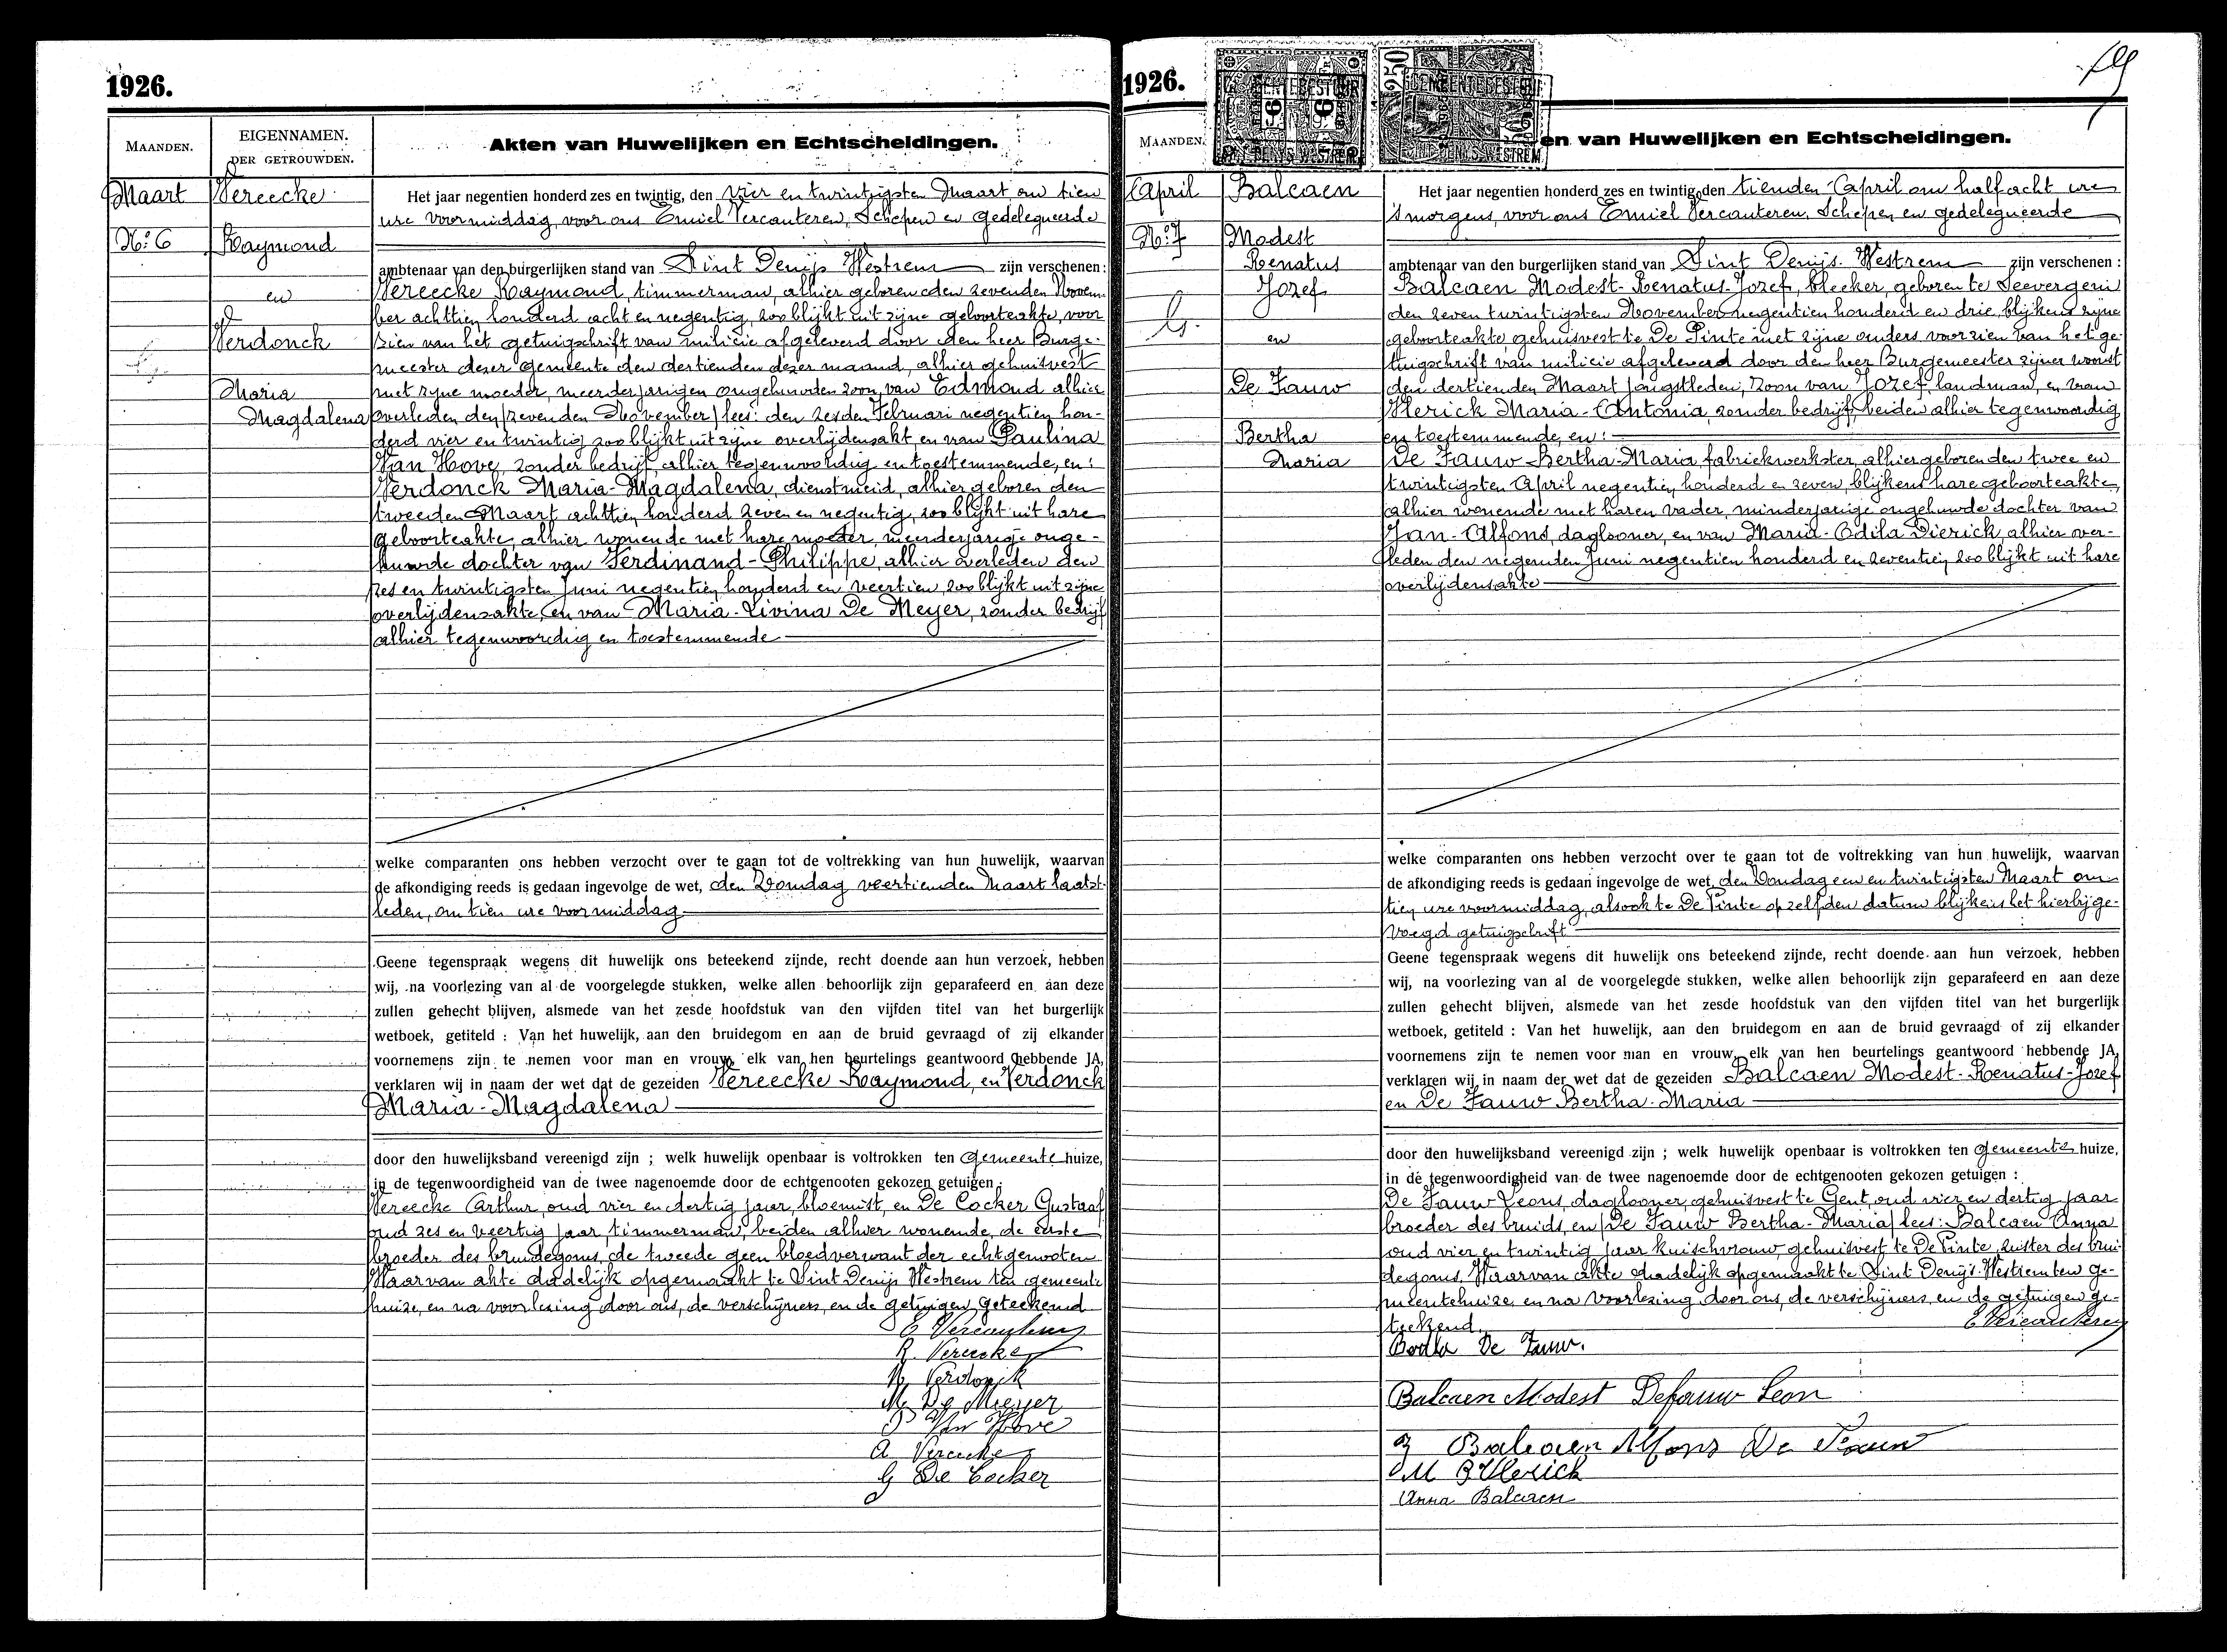 1926.
MAANDEN.
EIGENNAMEN.
DER GETROUWDEN.
Akten van Huwelijken en Echtscheidingen.
Maart
Vereecke
No: 6
Raymond
en
Verdonck
Maria
Magdalena
Het jaar negentien honderd zes en twintig, den vier en twintigsten Maart om tien
ure voormiddag, voor ons Emiel Vercauteren, Schepen en gedelegueerde
ambtenaar van den burgerlijken stand van Sint Denijs Westrem zijn verschenen:
Vereecke Raymond, timmerman, alhier geboren den zevenden Novem-
ber achttien honderd acht en negentig, zoo blijkt uit zijne geboorteakte, voor
zien van het getuigschrift van milicie afgeleverd door den heer Burge-
meester dezer gemeente den dertienden dezer maand, alhier gehuisvest
met zyne moeder, meerderjarigen ongehuwden zoon van Edmond alhier
overleden den/zevenden November/lees: den zesden Februari negentien hon-
derd vier en twintig zoo blijkt uit zijne overlijdensakt en van Paulina
Van Hove, zonder bedrijf, alhier tegenwoordig en toestemmende, en:
Verdonck Maria-Magdalena, dienstmeid, alhier geboren den
tweeden Maart achttien honderd zeven en negentig, zoo blijkt uit hare
geboorteakte, alhier wonende met hare moeder, meerderjarige onge-
huwde dochter van Ferdinand-Philippe, alhier overleden den
zes en twintigsten Juni negentien honderd en veertien, zoo blijkt uit zijne
overlijdensakte, en van Maria-Livina De Meyer, zonder bedrijf
alhier tegenwoordig en toestemmende
welke comparanten ons hebben verzocht over te gaan tot de voltrekking van hun huwelijk, waarvan
de afkondiging reeds is gedaan ingevolge de wet, den Zondag veertienden Maart laatst-
leden, om tien ure voormiddag
Geene tegenspraak wegens dit huwelijk ons beteekend zijnde, recht doende aan hun verzoek, hebben
wij, na voorlezing van al de voorgelegde stukken, welke allen behoorlijk zijn geparafeerd en aan deze
zullen gehecht blijven, alsmede van het zesde hoofdstuk van den vijfden titel van het burgerlijk
wetboek, getiteld : Van het huwelijk, aan den bruidegom en aan de bruid gevraagd of zij elkander
voornemens zijn te nemen voor man en vrouw, elk van hen beurtelings geantwoord hebbende JA,
verklaren wij in naam der wet dat de gezeiden Vereecke Raymond, en Verdonck
Maria-Magdalena
door den huwelijksband vereenigd zijn ; welk huwelijk openbaar is voltrokken ten gemeente huize,
in de tegenwoordigheid van de twee nagenoemde door de echtgenooten gekozen getuigen :
Vereecke Arthur, oud vier en dertig jaar, bloemist, en De Cocker Gustaaf
oud zes en veertig jaar, timmerman, beiden alhier wonende, de eerste
broeder des bruidegoms, de tweede geen bloedverwant der echtgenooten
Waarvan akte dadelijk opgemaakt te Sint Denijs Westrem ten gemeente
huize, en na voorlezing door ons, de verschijners, en de getuigen geteekend
E Vercauteren
R. Vereecke
M. Verdonck
M. De Meyer
P Van Hove
A. Vereecke
G De Cocker
1926.
MAANDEN.
en van Huwelijken en Echtscheidingen.
April
Balcaen
No: 7
Modest
Renatus
Jozef
en
De Fauw
Bertha
Maria
Het jaar negentien honderd zes en twintig, den tienden April om half acht ure
's morgens, voor ons Emiel Vercauteren, Schepen en gedelegueerde
ambtenaar van den burgerlijken stand van Sint Denijs-Westrem zijn verschenen :
Balcaen Modest-Renatus-Jozef, bleeker, geboren te Seevergem
den zeven twintigsten November negentien honderd en drie, blijkens zijne
geboorteakte, gehuisvest te De Pinte met zijne ouders voorzien van het ge-
tuigschrift van milicie afgeleverd door den heer Burgemeester zijner woonst
den dertienden Maart jongstleden, zoon van Jozef, landman, en van
Herick Maria-Antonia, zonder bedrijf, beiden alhier tegenwoordig
en toestemmende, en:
De Fauw Bertha-Maria, fabriekwerkster, alhier geboren den twee en
twintigsten April negentien honderd en zeven, blijkens hare geboorteakte,
alhier wonende met haren vader, minderjarige ongehuwde dochter van
Jan-Alfons, daglooner, en van Maria-Odila Dierick, alhier over-
leden den negenden Juni negentien honderd en zeventien, zoo blijkt uit hare
overlijdensakte
welke comparanten ons hebben verzocht over te gaan tot de voltrekking van hun huwelijk, waarvan
de afkondiging reeds is gedaan ingevolge de wet, den Zondag een en twintigsten Maart om
tien ure voormiddag, alsook te De Pinte op zelfden datum blijkens het hierbijge-
voegd getuigschrift
Geene tegenspraak wegens dit huwelijk ons beteekend zijnde, recht doende aan hun verzoek, hebben
wij, na voorlezing van al de voorgelegde stukken, welke allen behoorlijk zijn geparafeerd en aan deze
zullen gehecht blijven, alsmede van het zesde hoofdstuk van den vijfden titel van het burgerlijk
wetboek, getiteld : Van het huwelijk, aan den bruidegom en aan de bruid gevraagd of zij elkander
voornemens zijn te nemen voor man en vrouw, elk van hen beurtelings geantwoord hebbende JA,
verklaren wij in naam der wet dat de gezeiden Balcaen Modest-Renatus-Jozef
en De Fauw Bertha-Maria
door den huwelijksband vereenigd zijn ; welk huwelijk openbaar is voltrokken ten gemeente huize,
in de tegenwoordigheid van de twee nagenoemde door de echtgenooten gekozen getuigen :
De Fauw Leons, daglooner, gehuisvest te Gent, oud vier en dertig jaar
broeder des bruids, en/De Fauw Bertha-Maria/lees: Balcaen Anna
oud vier en twintig jaar kuischvrouw gehuisvest te De Pinte, zuster des brui-
degoms. Waarvan akte dadelijk opgemaakt te Sint Denijs-Westrem ten ge-
meentehuize en na voorlezing door ons, de verschijners, en de getuigen ge-
teekend.
E Vercauteren
De Fauw.
Balcaen Modest Defauw Leon
Balcaen Alfons De Fauw
Anna Balcaen